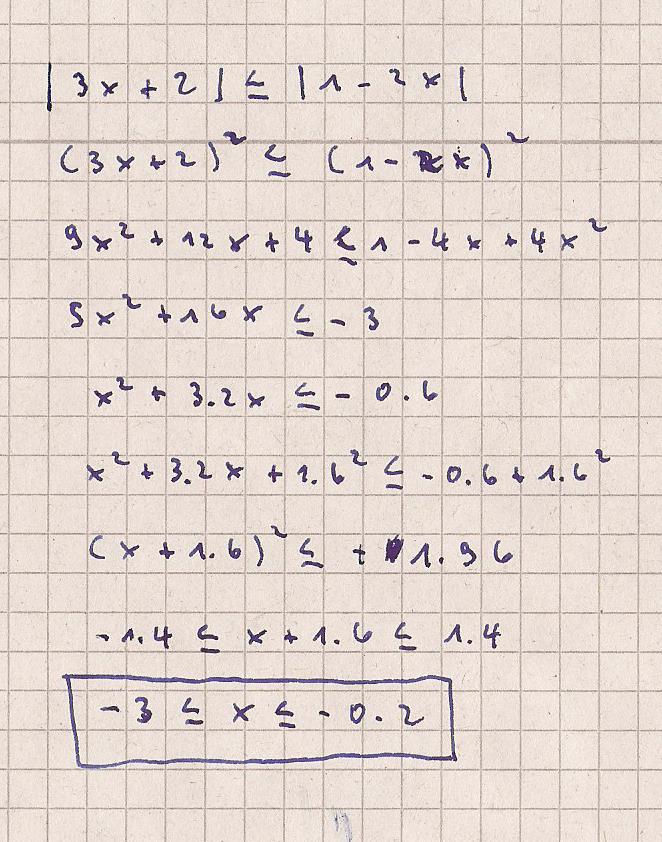 |3x + 2| ≤ |1 - 2x|
(3x + 2)² ≤ (1 - 2x)²
9x² + 12x + 4 ≤ 1 - 4x + 4x²
5x² + 16x ≤ -3
x² + 3.2x ≤ - 0.6
x² + 3.2x + 1.6² ≤ -0.6 + 1.6²
(x + 1.6)² ≤ + 1.96
-1.4 ≤ x + 1.6 ≤ 1.4
-3 ≤ x ≤ -0.2